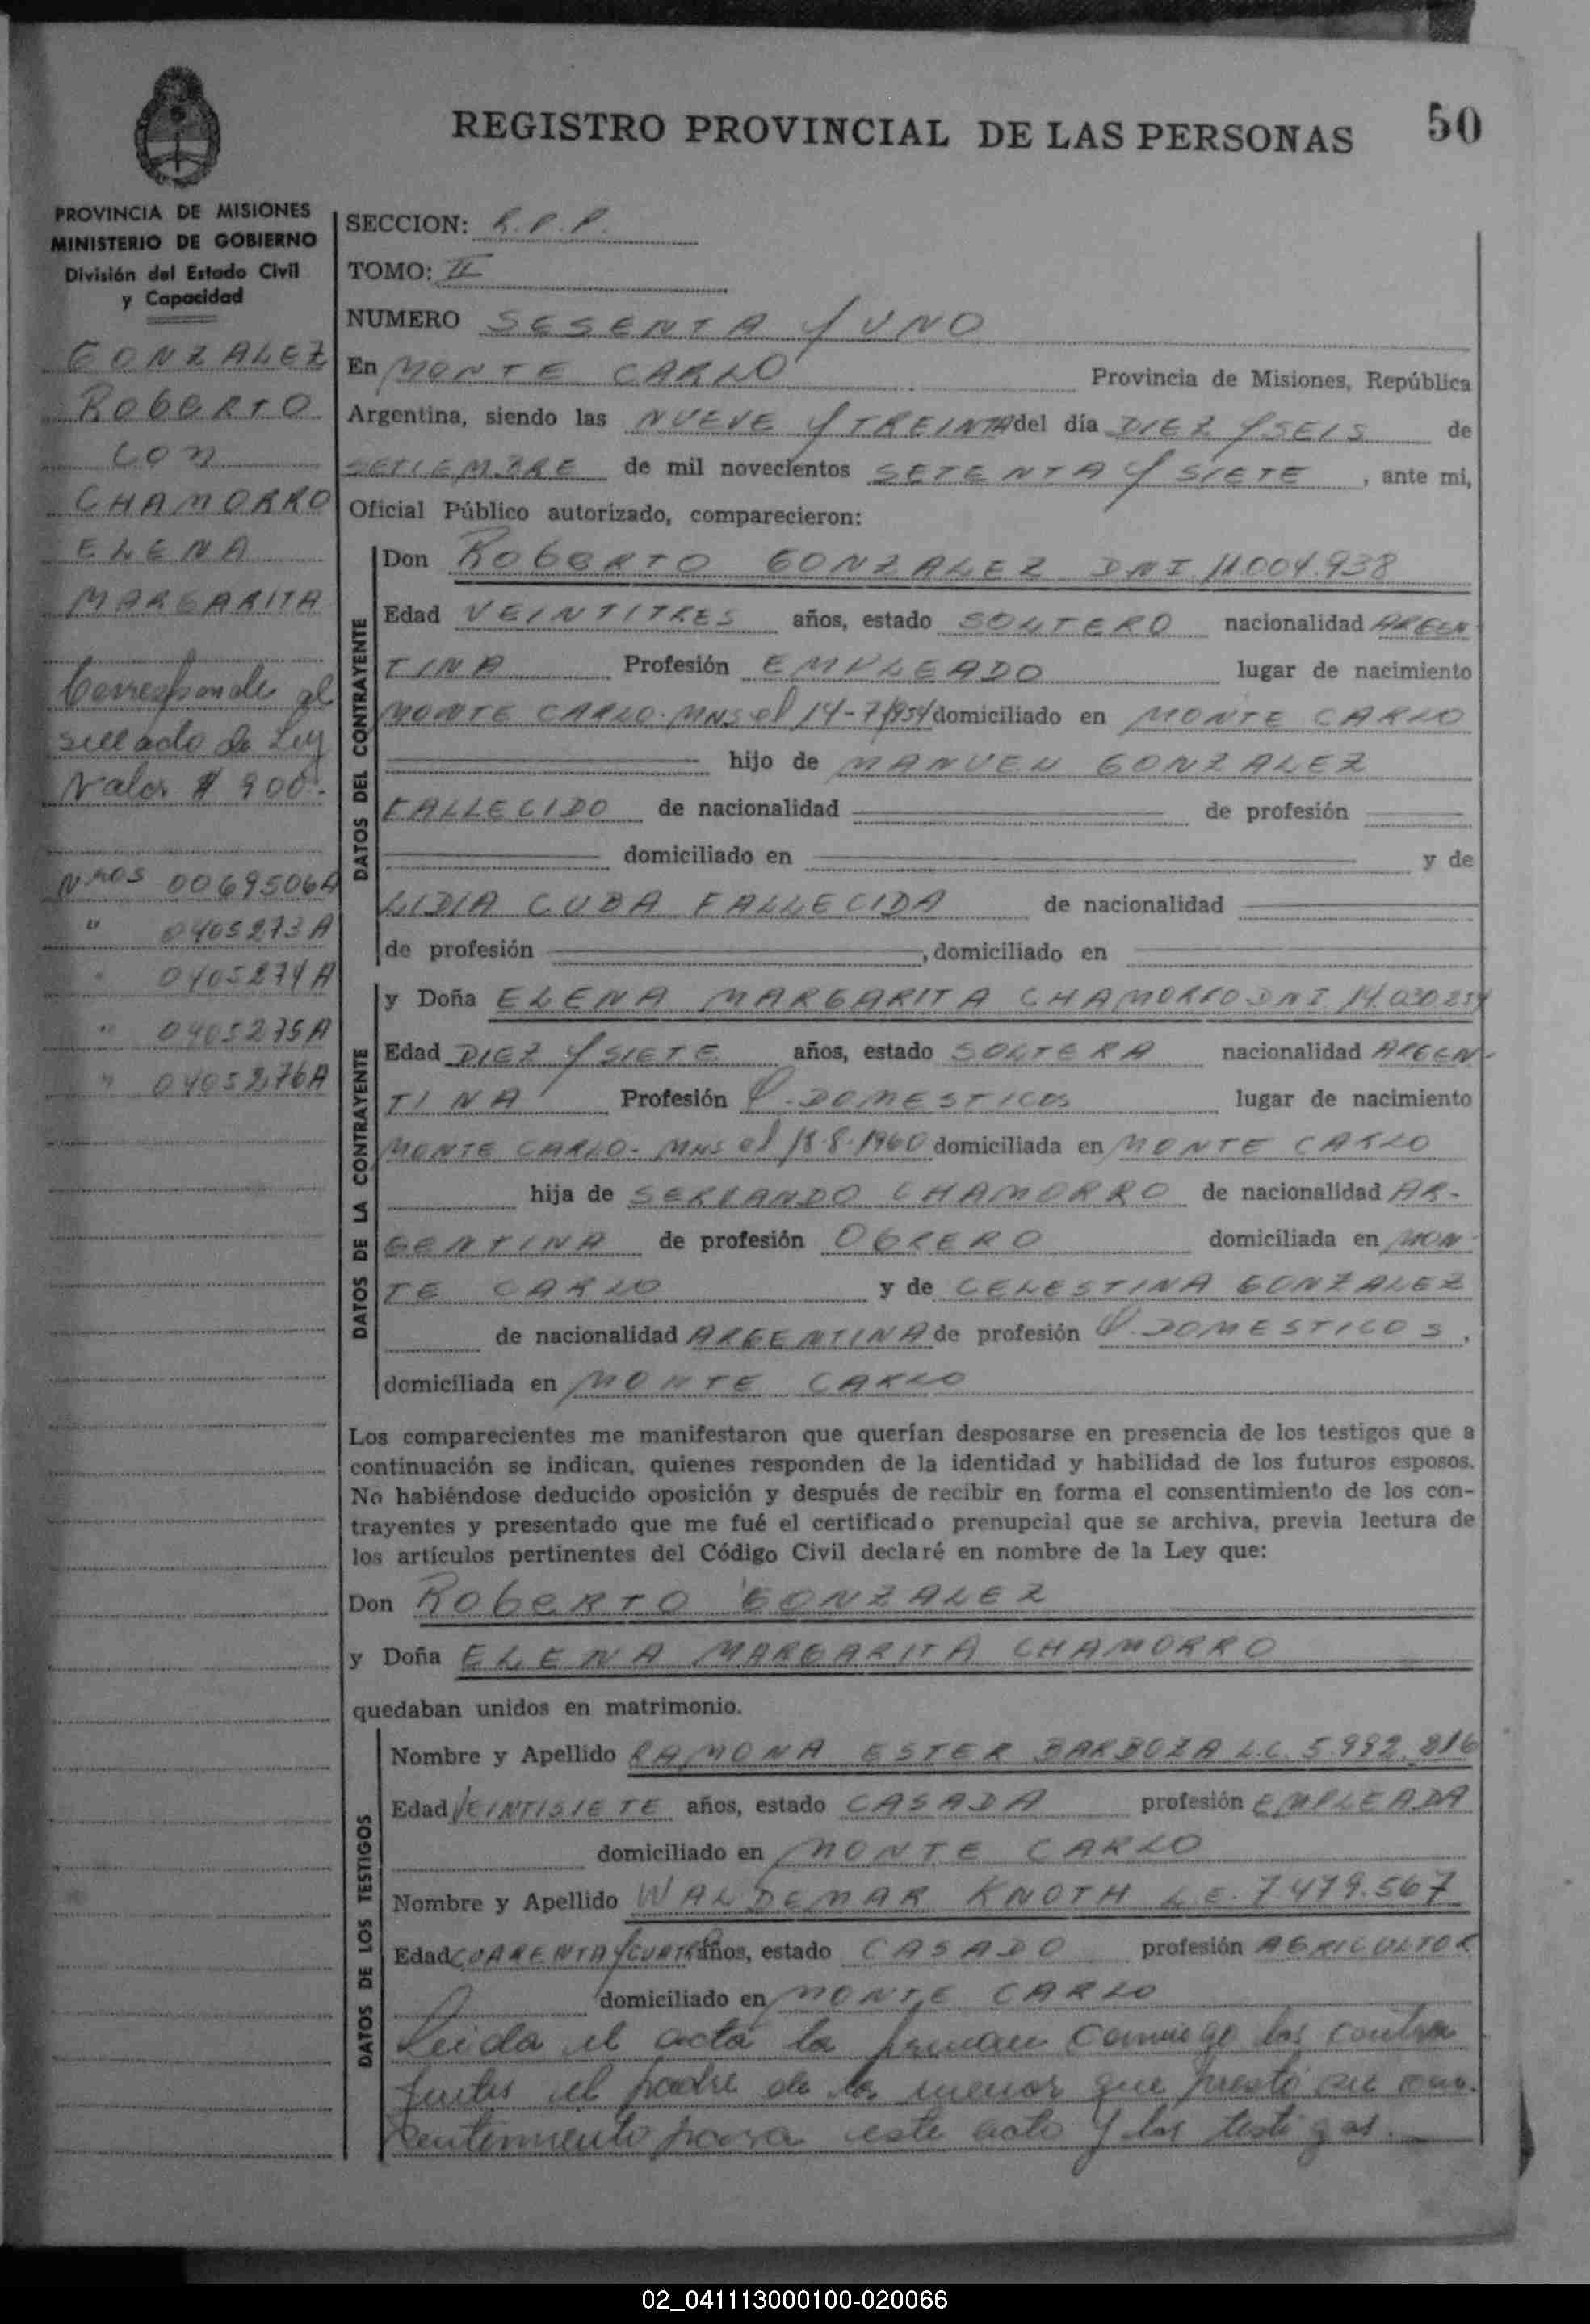 REGISTRO PROVINCIAL DE LAS PERSONAS
50
PROVINCIA DE MISIONES
MINISTERIO DE GOBIERNO
División del Estado Civil
y Capacidad
GONZALEZ
ROBERTO
con
CHAMORRO
ELENA
MARGARITA
Corresponde al
sellado de Ley
Valor $ 900.-
Nros 0069506A
" 0405273A
" 0405274A
" 0405275A
" 0405276A
SECCION: R.P.P.
TOMO: II
NUMERO SESENTA Y UNO
En MONTE CARLO Provincia de Misiones, República
Argentina, siendo las NUEVE Y TREINTA del día DIEZ Y SEIS de
SETIEMBRE de mil novecientos SETENTA Y SIETE, ante mi,
Oficial Público autorizado, comparecieron:
DATOS DEL CONTRAYENTE
Don ROBERTO GONZALEZ DNI 11.004.938
Edad VEINTITRES años, estado SOLTERO nacionalidad ARGEN
TINA Profesión EMPLEADO lugar de nacimiento
MONTE CARLO-MNS el 14-7-1954 domiciliado en MONTE CARLO
hijo de MANUEL GONZALEZ
FALLECIDO de nacionalidad de profesión
domiciliado en y de
LIDIA CUBA FALLECIDA de nacionalidad
de profesión , domiciliado en
DATOS DE LA CONTRAYENTE
y Doña ELENA MARGARITA CHAMORRO DNI 14.030.254
Edad DIEZ Y SIETE años, estado SOLTERA nacionalidad ARGEN-
TINA Profesión Q. DOMESTICOS lugar de nacimiento
MONTE CARLO-MNS el 18-8-1960 domiciliada en MONTE CARLO
hija de SERVANDO CHAMORRO de nacionalidad AR-
GENTINA de profesión OBRERO domiciliada en MON
TE CARLO y de CELESTINA GONZALEZ
de nacionalidad ARGENTINA de profesión Q. DOMESTICOS,
domiciliada en MONTE CARLO
Los comparecientes me manifestaron que querían desposarse en presencia de los testigos que a
continuación se indican, quienes responden de la identidad y habilidad de los futuros esposos.
No habiéndose deducido oposición y después de recibir en forma el consentimiento de los con-
trayentes y presentado que me fué el certificado prenupcial que se archiva, previa lectura de
los artículos pertinentes del Código Civil declaré en nombre de la Ley que:
Don ROBERTO GONZALEZ
y Doña ELENA MARGARITA CHAMORRO
quedaban unidos en matrimonio.
DATOS DE LOS TESTIGOS
Nombre y Apellido RAMONA ESTER BARBOZA L.C. 5.992.816
Edad VEINTISIETE años, estado CASADA profesión EMPLEADA
domiciliado en MONTE CARLO
Nombre y Apellido WALDEMAR KNOTH L.E. 7.479.567
Edad CUARENTA Y CUATRO años, estado CASADO profesión AGRICULTOR
domiciliado en MONTE CARLO
Leida el acta la firman conmigo los contra
yentes el padre de la menor que prestó su con-
sentimiento para este acto y los testigos.
02_041113000100-020066